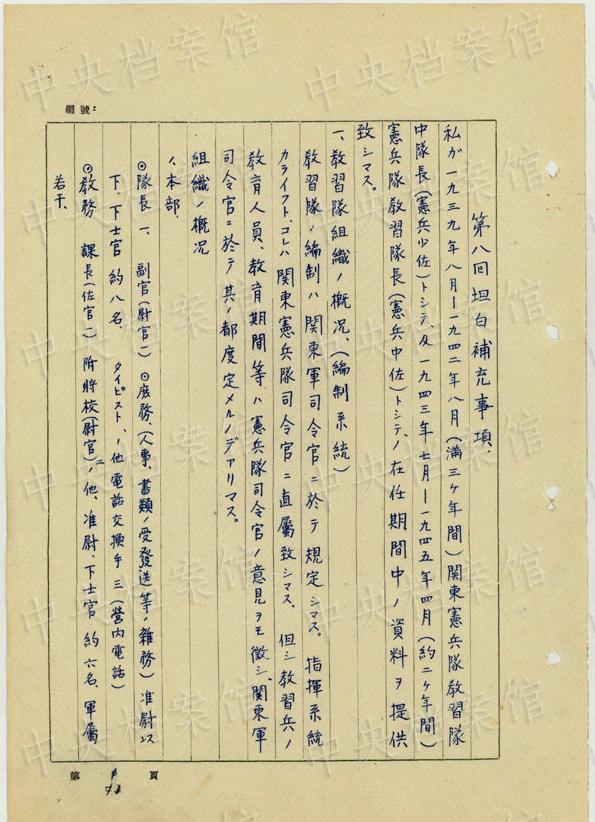 編號：
第八回坦白補充事項、
私ガ一九三九年八月ー一九四二年八月(満三ヶ年間)関東憲兵隊教習隊
中隊長(憲兵少佐)トシテ、及一九四三年七月ー一九四五年四月(約二ヶ年間)
憲兵隊教習隊長(憲兵中佐)トシテノ在任期間中ノ資料ヲ提供
致シマス。
一、教習隊組織ノ概況、(編制系統)
教習隊ノ編制ハ関東軍司令官ニ於テ規定シマス。指揮系統
カライフト、コレハ関東憲兵隊司令官ニ直屬致シマス。但シ教習兵ノ
教育人員、教育期間等ハ憲兵隊司令官ノ意見ヲモ徴シ、関東軍
司令官ニ於テ其ノ都度定メルノデアリマス。
組織ノ概況
本部、
◎隊長 一、副官(尉官一)◎庶務、(人事、書類ノ受發送等ノ雜務)准尉以
下、下士官 約八名、タイピスト、一他電話交換手 三(營内電話)
◎教務 課長(佐官一)附將校(尉官)二ノ他、准尉、下士官 約六名、軍屬
若干、
第 頁
中央档案馆